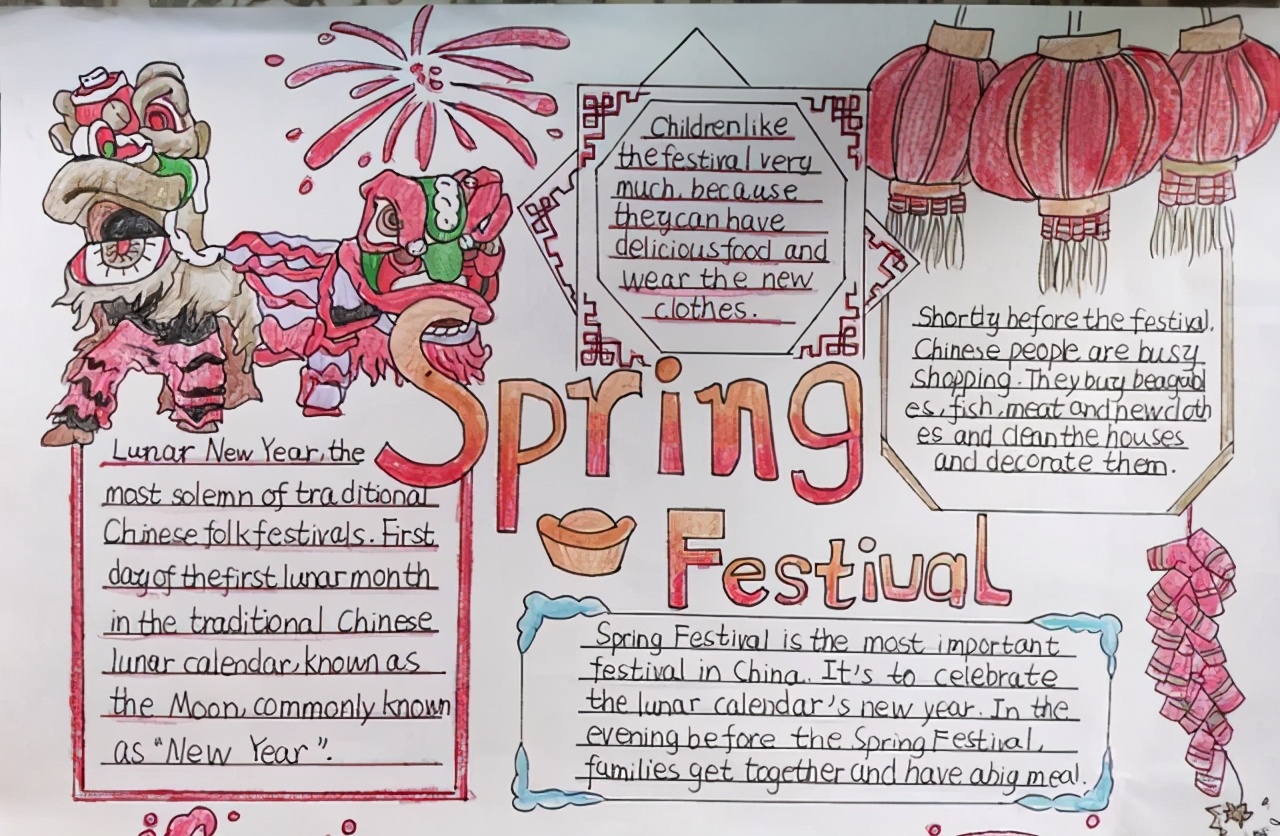 Children like
the festival very
much, because
they can have
delicious food and
wear the new
clothes.
Shortly before the festival,
Chinese people are busy
shopping. They buy beagabl
es, fish, meat and new cloth
es and clean the houses
and decorate them.
Spring
Festival
Lunar New Year, the
most solemn of traditional
Chinese folk festivals. First
day of the first lunar month
in the traditional Chinese
lunar calendar, known as
the Moon, commonly known
as "New Year".
Spring Festival is the most important
festival in China. It's to celebrate
the lunar calendar's new year. In the
evening before the Spring Festival,
families get together and have a big meal.